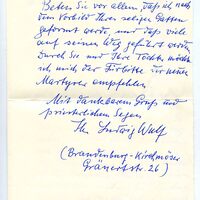 Beten Sie vor allem, daß ich nach
dem Vorbild Ihres seligen Gatten
geformt werde, und daß viele
auf seinen Weg geführt werden.
Durch Sie und Ihre Tochter möchte
ich mich der Fürbitte des neuen
Martyrers empfehlen
Mit dankbarem Gruß und
priesterlichem Segen
Ihr Ludwig Wulf
(Brandenburg-Kirchmöser
Gränertstr. 26)